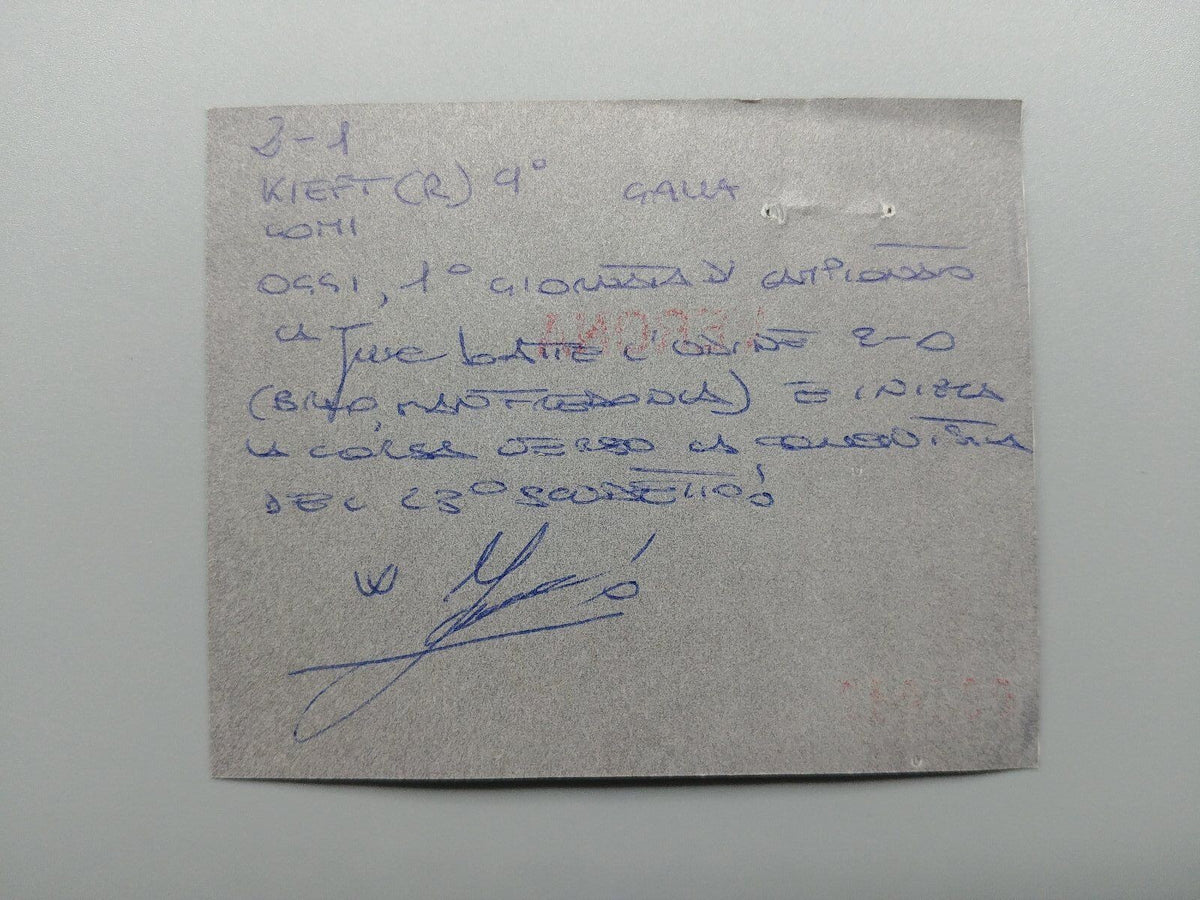 2-1
KIEFT (R) 9° GALIA
COMI
OGGI, 1° GIORNATA DI CAMPIONATO
LA Juve BATTE L'UDINE 2-0
(BRIO, MANFREDONIA) E INIZIA
LA CORSA VERSO LA CONQUISTA
DEL 23° SCUDETTO!
W Juve!